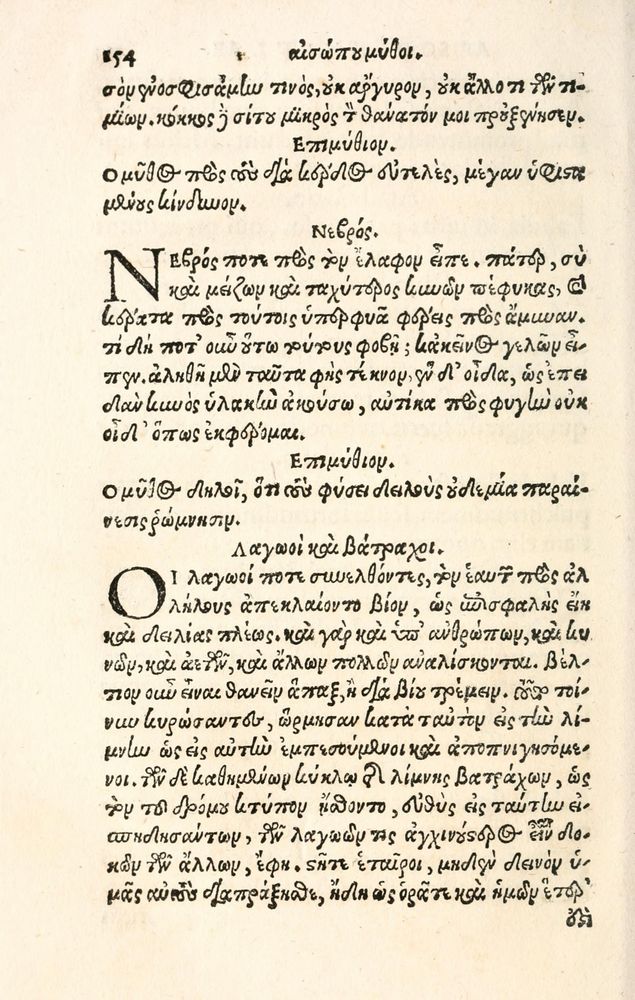 154 αἰσώπου μύθοι.
σὸν ἐνοσφισάμην τινὸς, οὐκ ἄργυρον, οὐκ ἄλλο τι τῶν τι-
μίων. κόκκος δὲ σίτου μικρὸς τὸ θάνατόν μοι προὐξένησεν.
Επιμύθιον.
Ο μῦθος πρὸς τοὺς διὰ κέρδος εὐτελὲς, μέγαν ὑφιστα
μένους κίνδυνον.
Νεβρός.
ΝΕβρός ποτε πρὸς τὸν ἔλαφον εἶπε. πάτερ, σὺ
καὶ μείζων καὶ ταχύτερος κυνῶν πέφυκας, καὶ
κέρατα πρὸς τούτοις ὑπερφυᾶ φέρεις πρὸς ἄμυναν.
τί δή ποτ' οὖν οὕτω τούτους φοβῇ; κἀκεῖνος γελῶν εἶ-
πεν. ἀληθῆ μὲν ταῦτα φῂς τέκνον, ἓν δ' οἶδα, ὡς ἐπει
δὰν κυνὸς ὑλακὴν ἀκούσω, αὐτίκα πρὸς φυγὴν οὐκ
οἶδ' ὅπως ἐκφέρομαι.
Επιμύθιον.
Ο μῦθος δηλοῖ, ὅτι τοὺς φύσει δειλοὺς οὐδεμία παραί-
νεσις ῥώννησιν.
Λαγωοὶ καὶ βάτραχοι.
ΟΙ λαγωοί ποτε συνελθόντες, τὸν ἑαυτῶν πρὸς ἀλ
λήλους ἀπεκλαίοντο βίον, ὡς ἐπισφαλὴς εἴη
καὶ δειλίας πλέως. καὶ γὰρ καὶ ὑπ' ἀνθρώπων, καὶ κυ
νῶν, καὶ ἀετῶν, καὶ ἄλλων πολλῶν ἀναλίσκονται. βέλ-
τιον οὖν εἶναι θανεῖν ἅπαξ, ἢ διὰ βίου τρέμειν. τοῦτο τοί-
νυν κυρώσαντες, ὥρμησαν κατὰ ταὐτὸν εἰς τὴν λί-
μνην ὡς εἰς αὐτὴν ἐμπεσούμενοι καὶ ἀποπνιγησόμε-
νοι. τῶν δὲ καθημένων κύκλῳ τῆς λίμνης βατράχων, ὡς
τὸν τοῦ δρόμου κτύπον ᾔσθοντο, εὐθὺς εἰς ταύτην εἰ-
σπηδησάντων, τῶν λαγωῶν τις ἀγχινούστερος εἶναι δο-
κῶν τῶν ἄλλων, ἔφη. στῆτε ἑταῖροι, μηδὲν δεινὸν ὑ-
μᾶς αὐτοὺς διαπράξησθε, ἤδη ὡς ὁρᾶτε καὶ ἡμῶν ἕτερ'